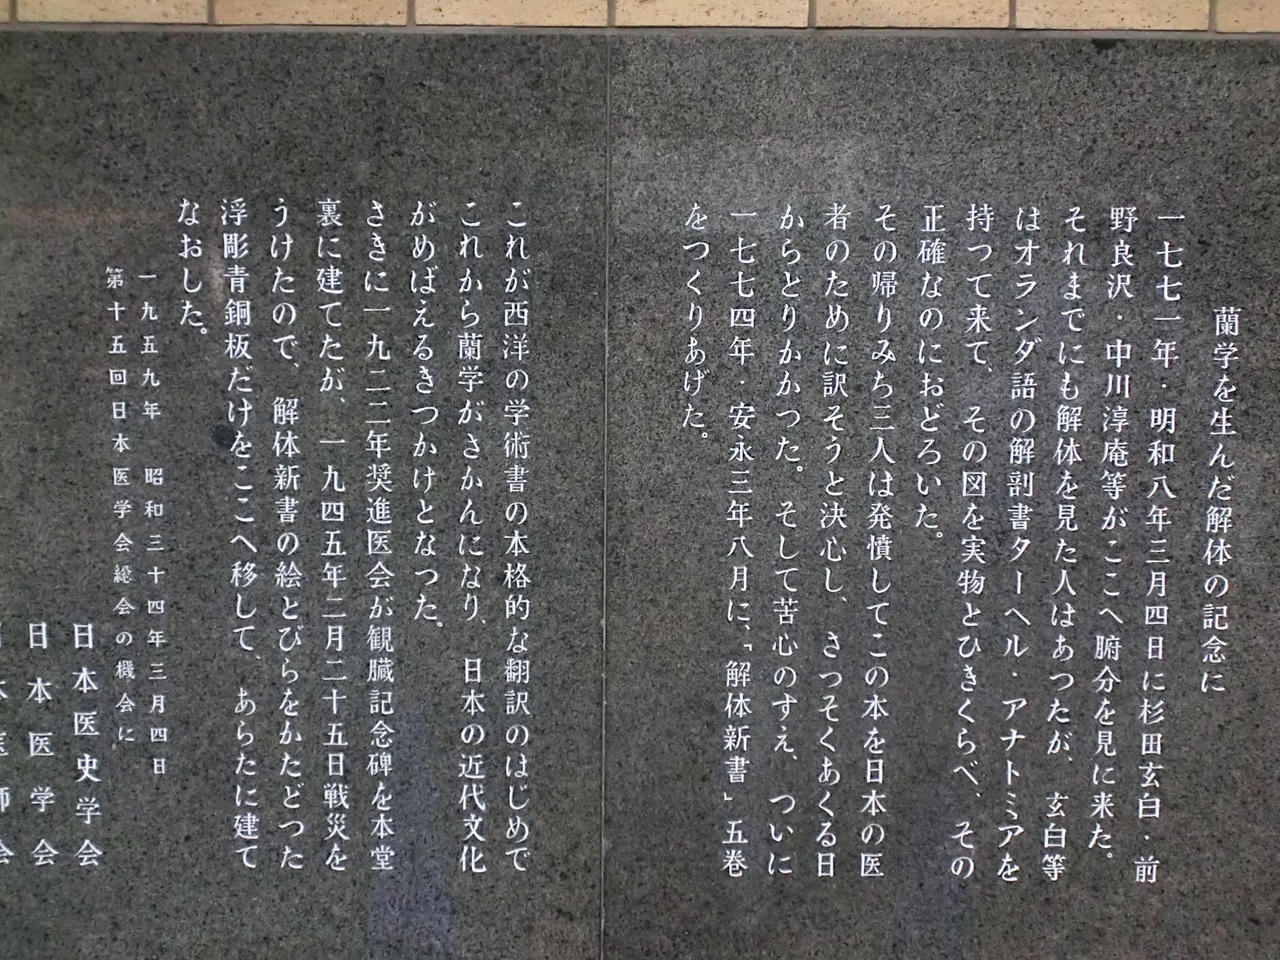 蘭学を生んだ解体の記念に
一七七一年・明和八年三月四日に杉田玄白・前
野良沢・中川淳庵等がここへ腑分を見に来た。
それまでにも解体を見た人はあつたが、玄白等
はオランダ語の解剖書ターヘル・アナトミアを
持つて来て、その図を実物とひきくらべ、その
正確なのにおどろいた。
その帰りみち三人は発憤してこの本を日本の医
者のために訳そうと決心し、さつそくあくる日
からとりかかつた。そして苦心のすえ、ついに
一七七四年・安永三年八月に、「解体新書」五巻
をつくりあげた。
これが西洋の学術書の本格的な翻訳のはじめで
これから蘭学がさかんになり、日本の近代文化
がめばえるきつかけとなつた。
さきに一九二二年奨進医会が観臓記念碑を本堂
裏に建てたが、一九四五年二月二十五日戦災を
うけたので、解体新書の絵とびらをかたどつた
浮彫青銅板だけをここへ移して、あらたに建て
なおした。
一九五九年 昭和三十四年三月四日
第十五回日本医学会総会の機会に
日本医史学会
日本医学会
日本医師会